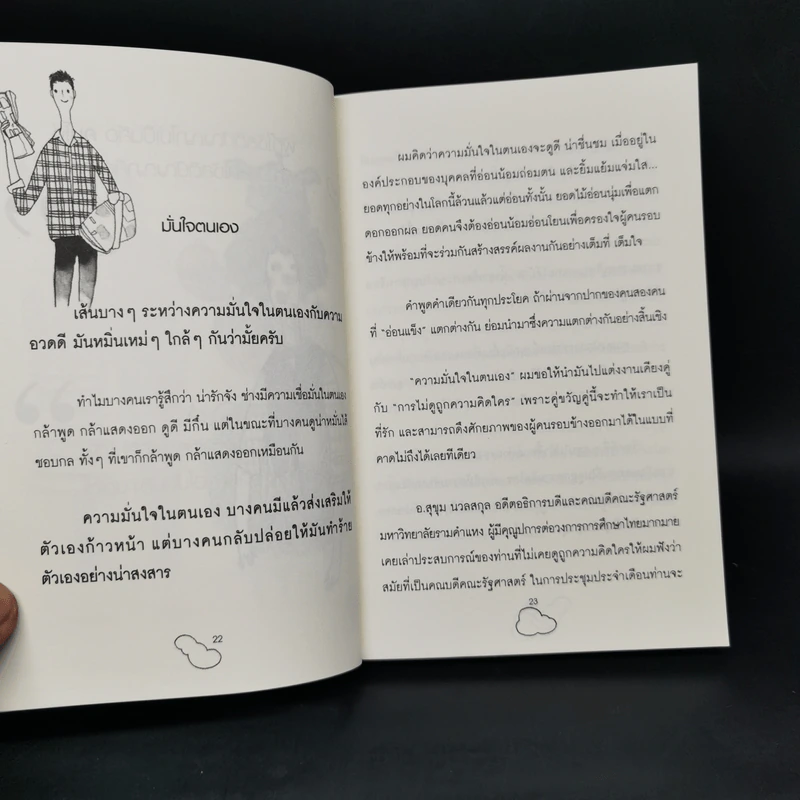 มั่นใจตนเอง
เส้นบางๆ ระหว่างความมั่นใจในตนเองกับความ
อวดดี มันหมิ่นเหม่ๆ ใกล้ๆ กันว่ามั้ยครับ
ทำไมบางคนเรารู้สึกว่า น่ารักจัง ช่างมีความเชื่อมั่นในตนเอง
กล้าพูด กล้าแสดงออก ดูดี มีกึ๋น แต่ในขณะที่บางคนดูน่าหมั่นไส้
ชอบกล ทั้งๆ ที่เขาก็กล้าพูด กล้าแสดงออกเหมือนกัน
ความมั่นใจในตนเอง บางคนมีแล้วส่งเสริมให้
ตัวเองก้าวหน้า แต่บางคนกลับปล่อยให้มันทำร้าย
ตัวเองอย่างน่าสงสาร
22
ผมคิดว่าความมั่นใจในตนเองจะดูดี น่าชื่นชม เมื่ออยู่ใน
องค์ประกอบของบุคคลที่อ่อนน้อมถ่อมตน และยิ้มแย้มแจ่มใส...
ยอดทุกอย่างในโลกนี้ล้วนแล้วแต่อ่อนทั้งนั้น ยอดไม้อ่อนนุ่มเพื่อแตก
ดอกออกผล ยอดคนจึงต้องอ่อนน้อมอ่อนโยนเพื่อครองใจผู้คนรอบ
ข้างให้พร้อมที่จะร่วมกันสร้างสรรค์ผลงานกันอย่างเต็มที่ เต็มใจ
คำพูดคำเดียวกันทุกประโยค ถ้าผ่านจากปากของคนสองคน
ที่ "อ่อนแข็ง" แตกต่างกัน ย่อมนำมาซึ่งความแตกต่างกันอย่างสิ้นเชิง
"ความมั่นใจในตนเอง" ผมขอให้นำมันไปแต่งงานเคียงคู่
กับ "การไม่ดูถูกความคิดใคร" เพราะคู่ขวัญคู่นี้จะทำให้เราเป็น
ที่รัก และสามารถดึงศักยภาพของผู้คนรอบข้างออกมาได้ในแบบที่
คาดไม่ถึงได้เลยทีเดียว
อ.สุขุม นวลสกุล อดีตอธิการบดีและคณบดีคณะรัฐศาสตร์
มหาวิทยาลัยรามคำแหง ผู้มีคุณูปการต่อวงการการศึกษาไทยมากมาย
เคยเล่าประสบการณ์ของท่านที่ไม่เคยดูถูกความคิดใครให้ผมฟังว่า
สมัยที่เป็นคณบดีคณะรัฐศาสตร์ ในการประชุมประจำเดือนท่านจะ
23